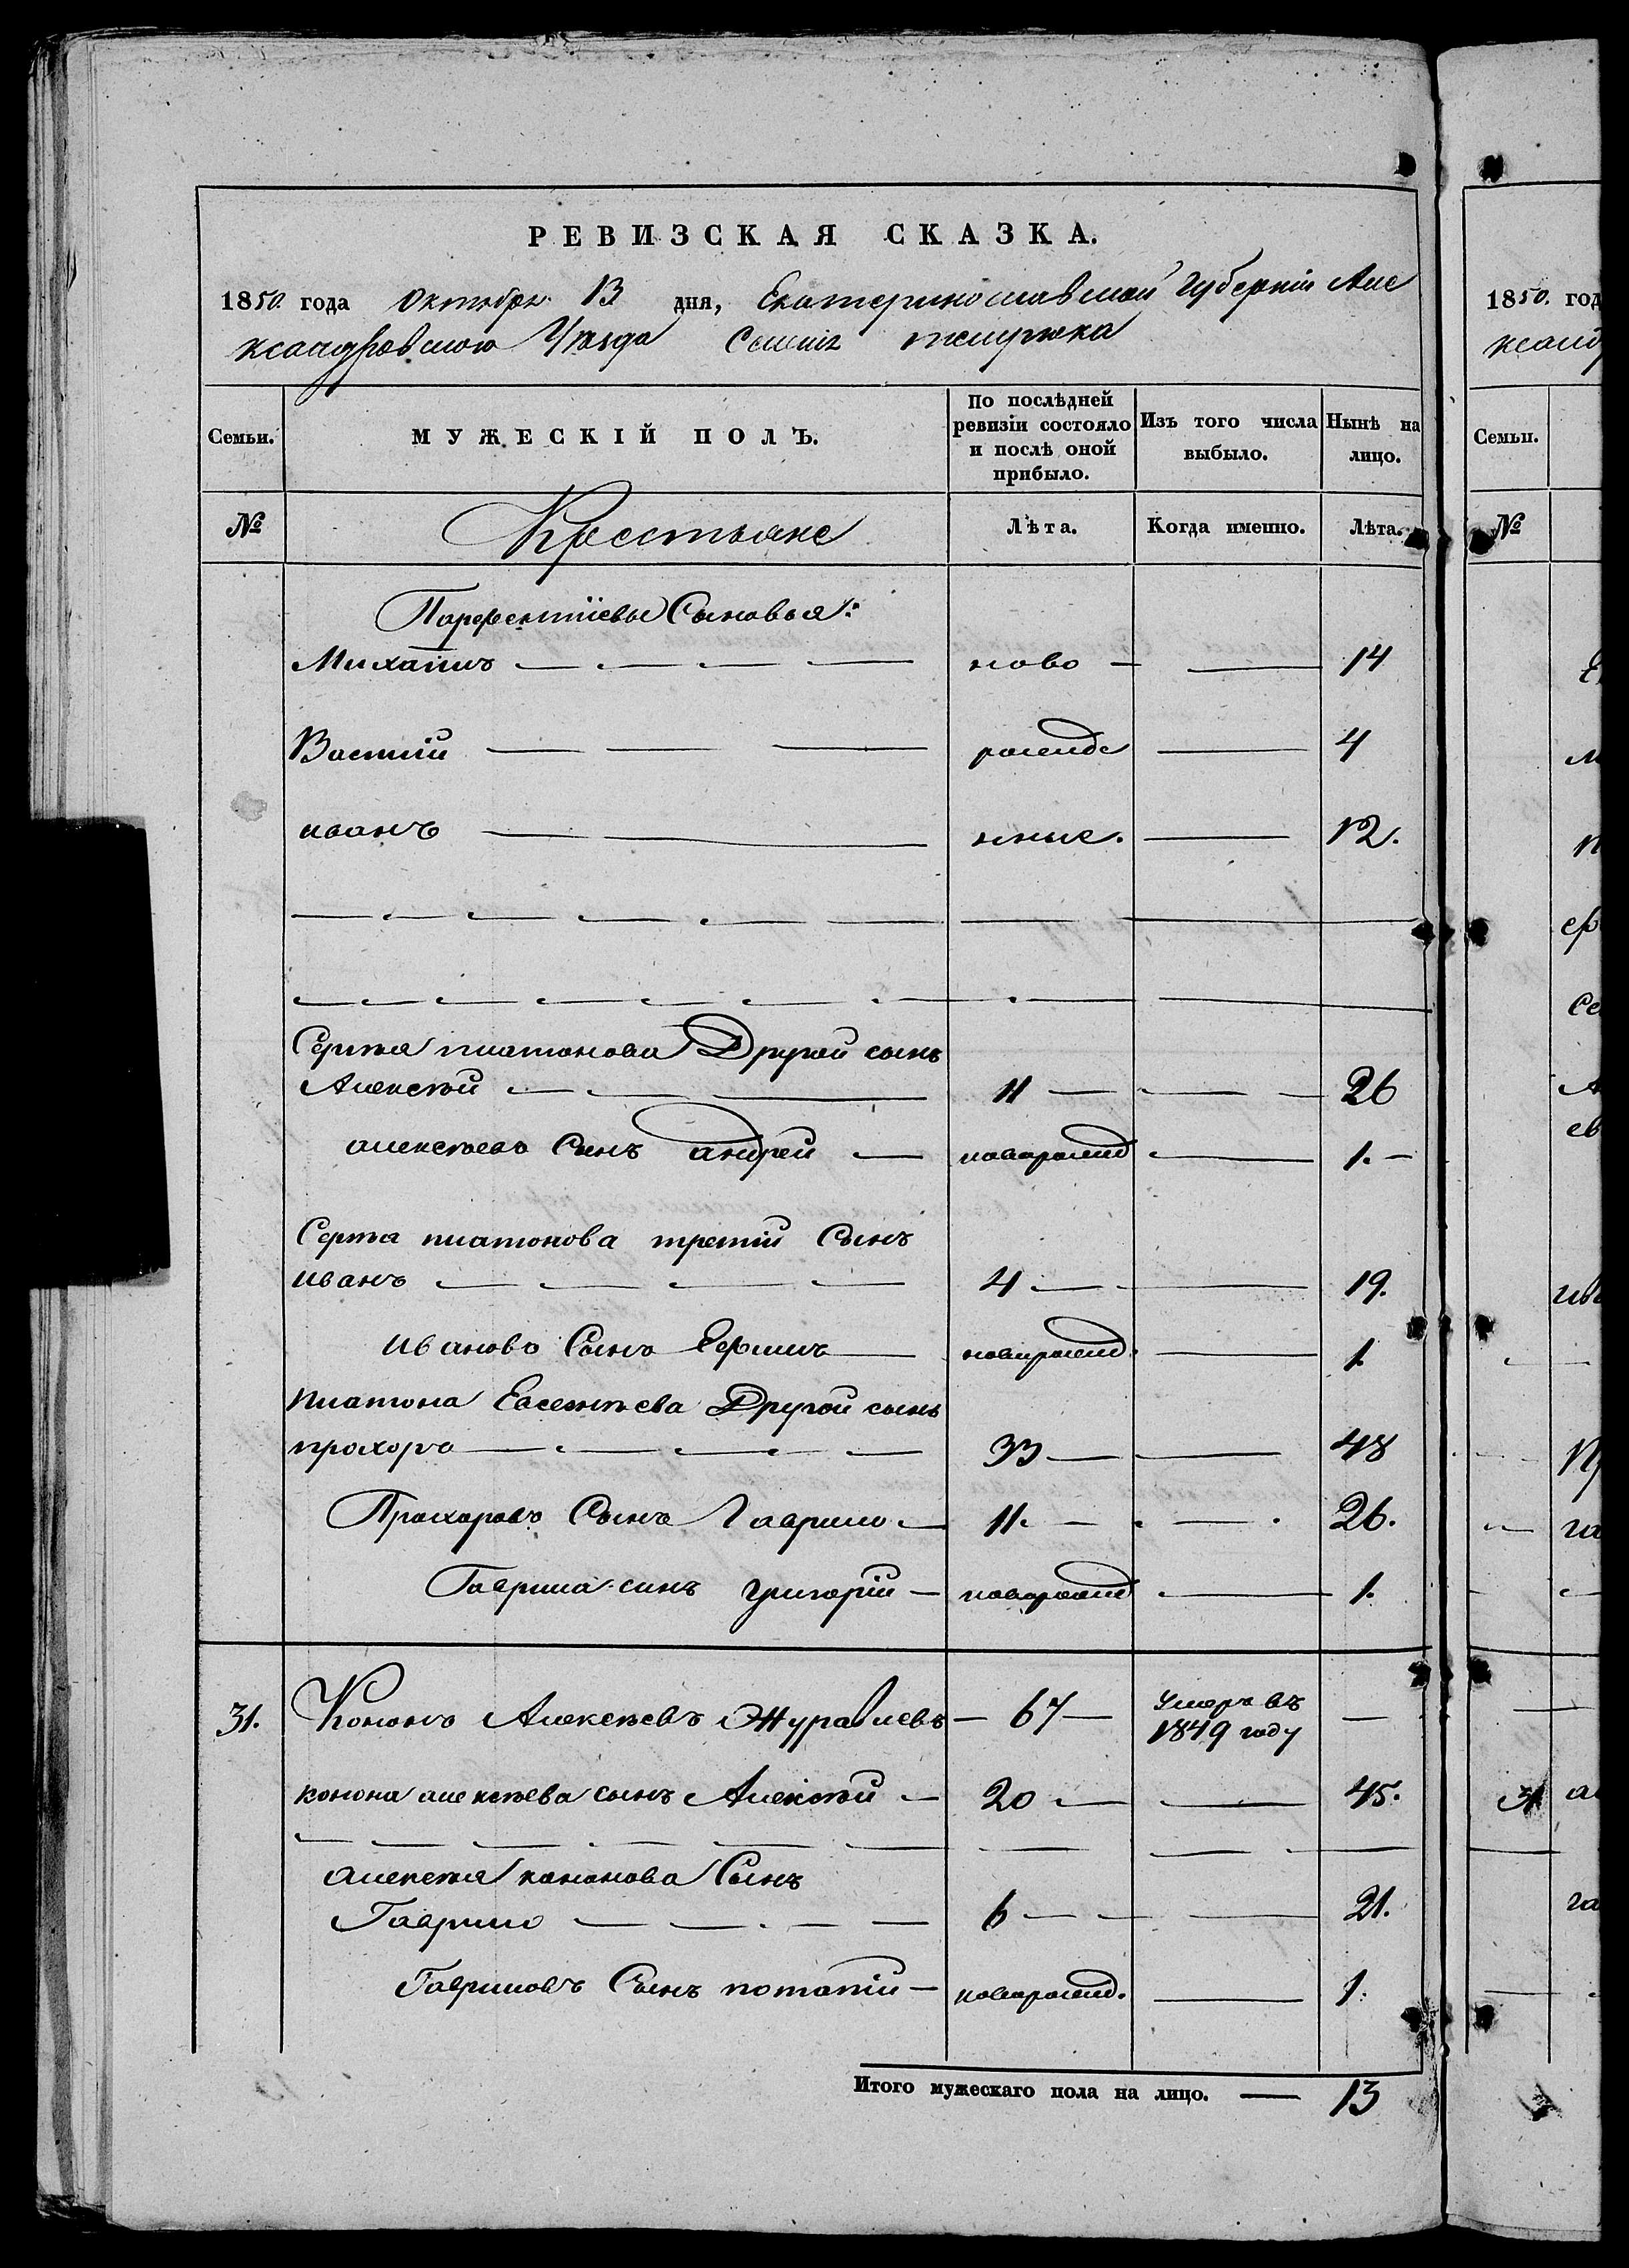 РЕВИЗСКАЯ СКАЗКА.
1850. года Октября 13 дня, Екатеринославской Губернiи Але
ксандровского Уѣзда Селенiя темрюка
Семьи. МУЖЕСКIЙ ПОЛЪ. По послѣдней ревизiи состояло и послѣ оной прибыло. Изъ того числа выбыло. Нынѣ на лицо.
№ Крестьяне Лѣта. Когда именно. Лѣта.
Парфентiевы Сыновья:
Михаилъ ново 14
Василiй рожде 4
иванъ нные. 12.
Сергѣя платонова Другой сынъ
Алексѣй 11 26
алексѣевъ Сынъ андрей новорожд 1.
Сергѣя платонова третiй Сынъ
иванъ 4 19.
ивановъ Сынъ Ефимъ новорожд. 1.
платона Евсентьева Другой сынъ
прохоръ 33 48
Прохоровъ Сынъ Гаврило 11. 26.
Гаврила сынъ григорiй новорожд 1.
31. Кононъ Алексѣевъ Журавлевъ 67 Умеръ въ 1849 году
конона алексѣева сынъ Алексѣй 20 45.
алексѣя кононова Сынъ
Гаврило 6 21.
Гавриловъ Сынъ потапiй новорожд. 1.
Итого мужескаго пола на лицо. 13
1850. год
ксанд
Семьи.
№